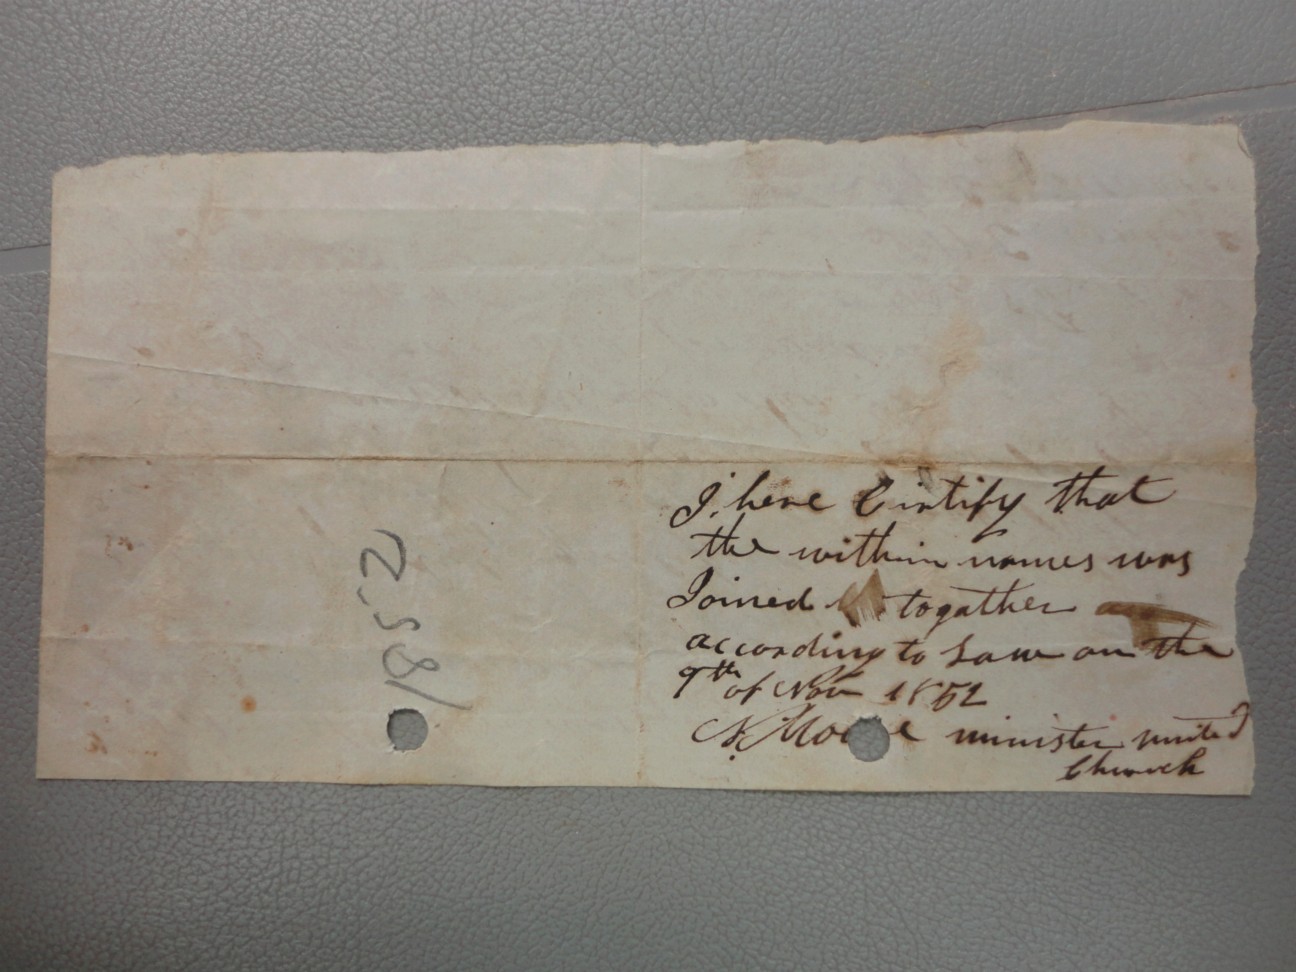 I here Certify that
the within names was
Joined togather
according to Law on the
9th of Nov 1852
N. Moore minister united
Church
1852